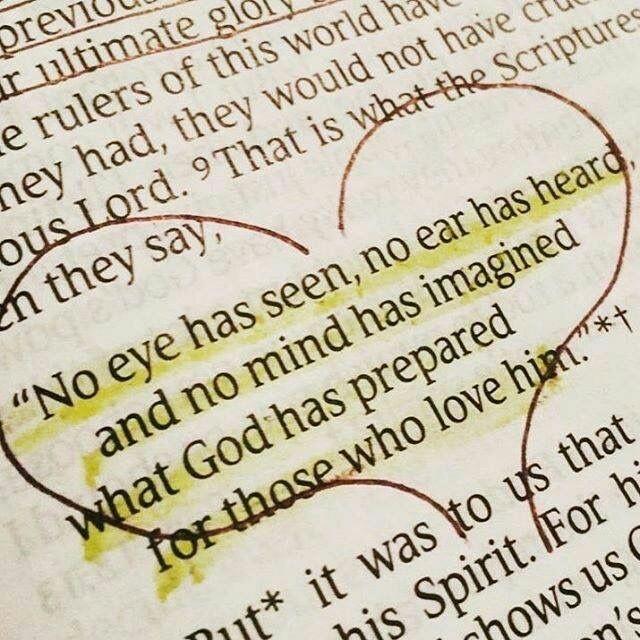 ultimate glory
rulers of this world have
had, they would not have
Lord. 9 That is what the Scriptures
they say,
“No eye has seen, no ear has heard,
and no mind has imagined
what God has prepared
for those who love him.”*†
But* it was to us that
his Spirit. For
shows us